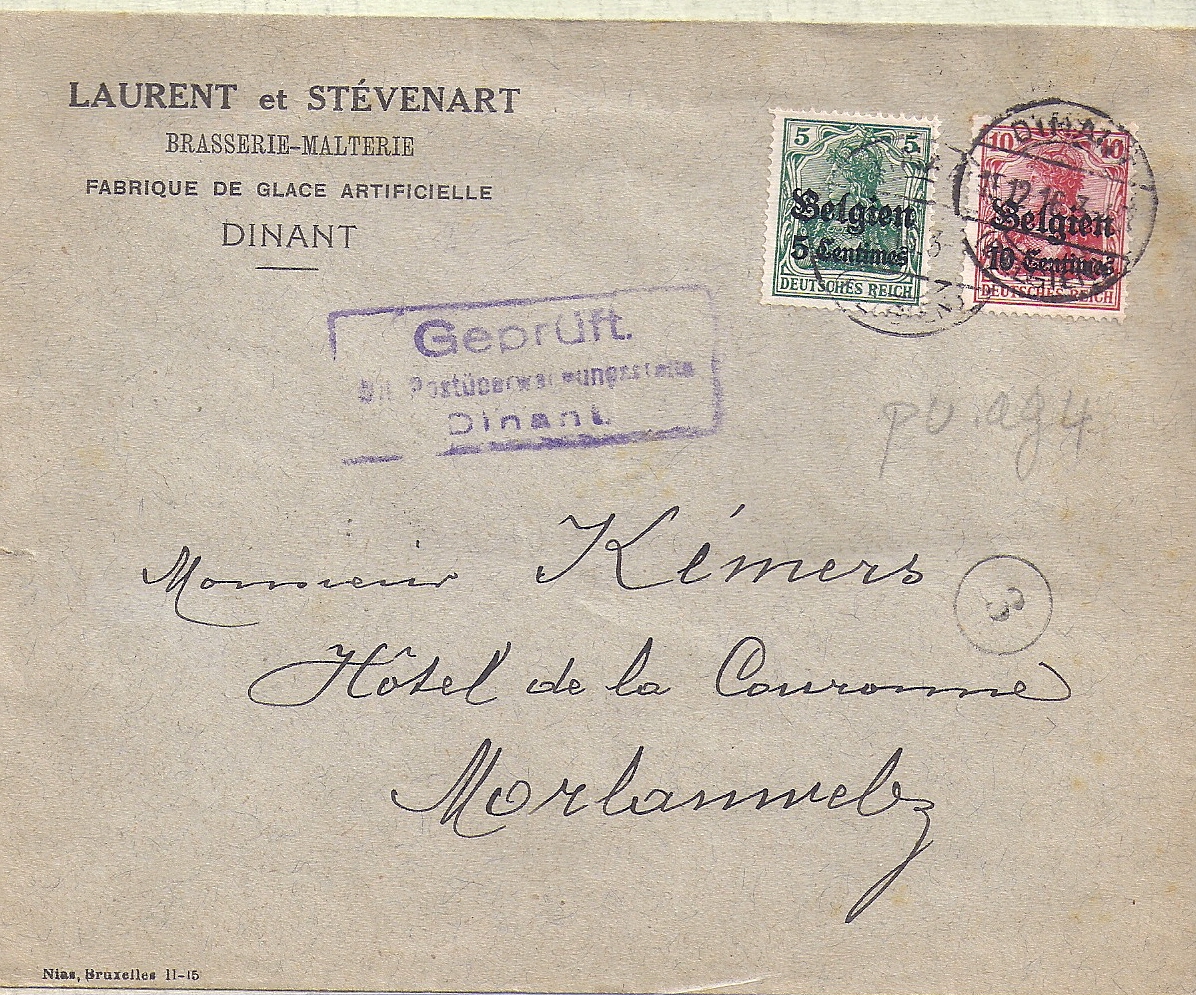 LAURENT et STÉVENART
BRASSERIE-MALTERIE
FABRIQUE DE GLACE ARTIFICIELLE
DINANT
5 5
Belgien
5 Centimes
DEUTSCHES REICH
10 10
Belgien
10 Centimes
DEUTSCHES REICH
DINANT
12.16.3
Geprüft.
Postüberwachungsstelle
Dinant.
Monsieur Kémers
3
Hôtel de la Couronne
Morlanwelz
Nias, Bruxelles 11-15